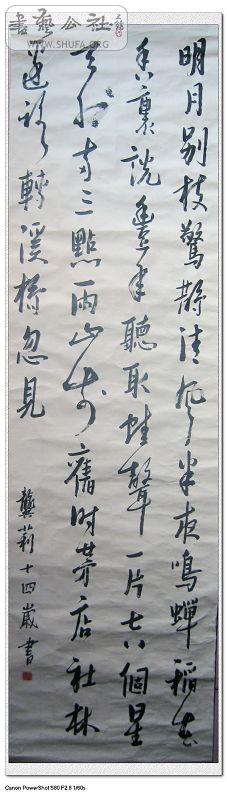 書藝公社
WWW.SHUFA.ORG
明月别枝驚鵲清風半夜鳴蟬稻花
香裏説豊年聽取蛙聲一片七八個星
天外两三點雨山前舊時茅店社林
邊路轉溪橋忽見
龔莉十四歲書
Canon PowerShot S80 F2.8 1/60s